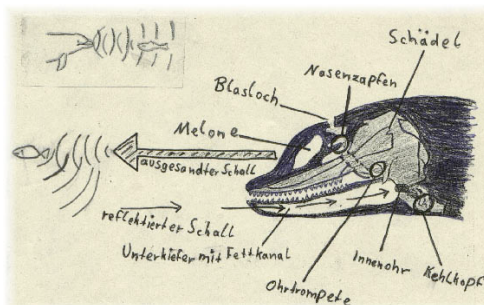 Schädel
Nasenzapfen
Blasloch
Melone
ausgesandter Schall
reflektierter Schall
Unterkiefer mit Fettkanal
Ohrtrompete
Innenohr
Kehlkopf